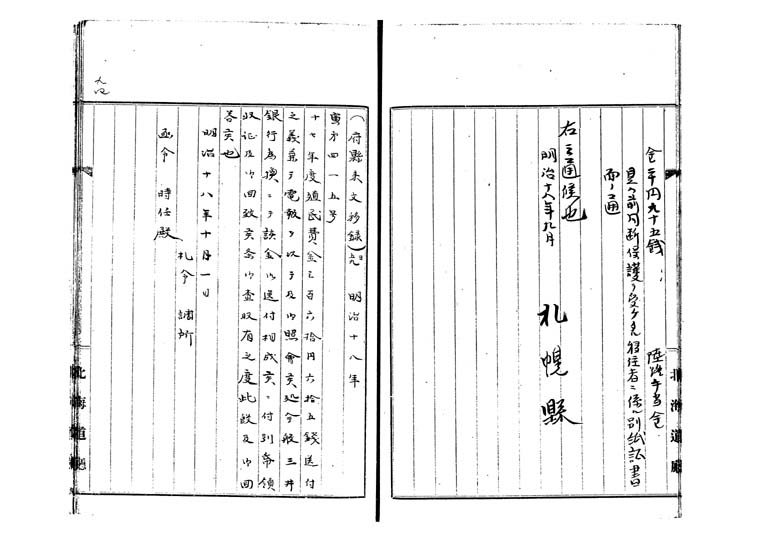 金 円九十五銭
是ハ前同断保護ヲ受ケタル移住者ニ係ル別紙証書
面ノ通
右之通候也
明治十八年九月
札幌縣
北海道廰
(府縣来文移録) 明治十八年
第四一五号
十七年度殖民費金三百六十円六拾五銭送付
之義兼テ電報ヲ以テ及御照會候処今般三井
銀行為換ニテ該金御送付相成候ニ付別帋領
収証及御回致候条御査収有之度此段及御回
答候也
明治十八年十月一日
札令 調所
函令 時任殿
北海道廰